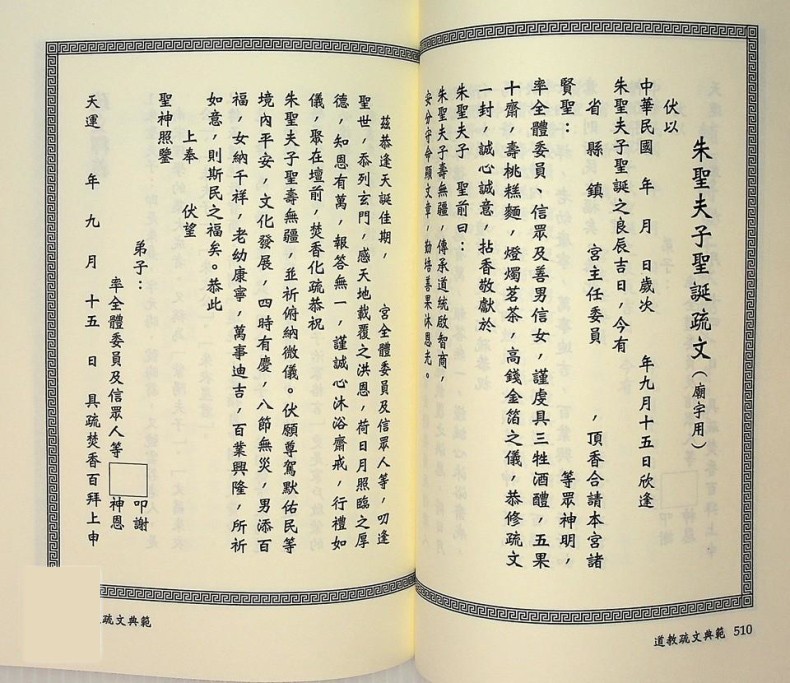 朱聖夫子聖誕疏文(廟宇用)
伏以
中華民國 年 月 日歲次 年九月十五日欣逢
朱聖夫子聖誕之良辰吉日,今有
省 縣 鎮 宮主任委員 ,頂香合請本宮諸
賢聖: 等眾神明,
率全體委員、信眾及善男信女,謹虔具三牲酒醴,五果
十齋,壽桃糕麵,燈燭茗茶,高錢金箔之儀,恭修疏文
一封,誠心誠意,拈香敬獻於
朱聖夫子 聖前曰:
朱聖夫子壽無疆,傳承道統啟智商,
安分守命顯文章,勤培善果沐恩光。
510 道教疏文典範
茲恭逢天誕佳期, 宮全體委員及信眾人等,叨逢
聖世,忝列玄門,感天地載覆之洪恩,荷日月照臨之厚
德,知恩有萬,報答無一,謹誠心沐浴齋戒,行禮如
儀,聚在壇前,焚香化疏恭祝
朱聖夫子聖壽無疆,並祈俯納微儀。伏願尊駕默佑民等
境內平安,文化發展,四時有慶,八節無災,男添百
福,女納千祥,老幼康寧,萬事迪吉,百業興隆,所祈
如意,則斯民之福矣。恭此
上奉 伏望
聖神照鑒
弟子: 叩謝
率全體委員及信眾人等 神恩
天運 年 九 月 十五 日 具疏焚香百拜上申
疏文典範